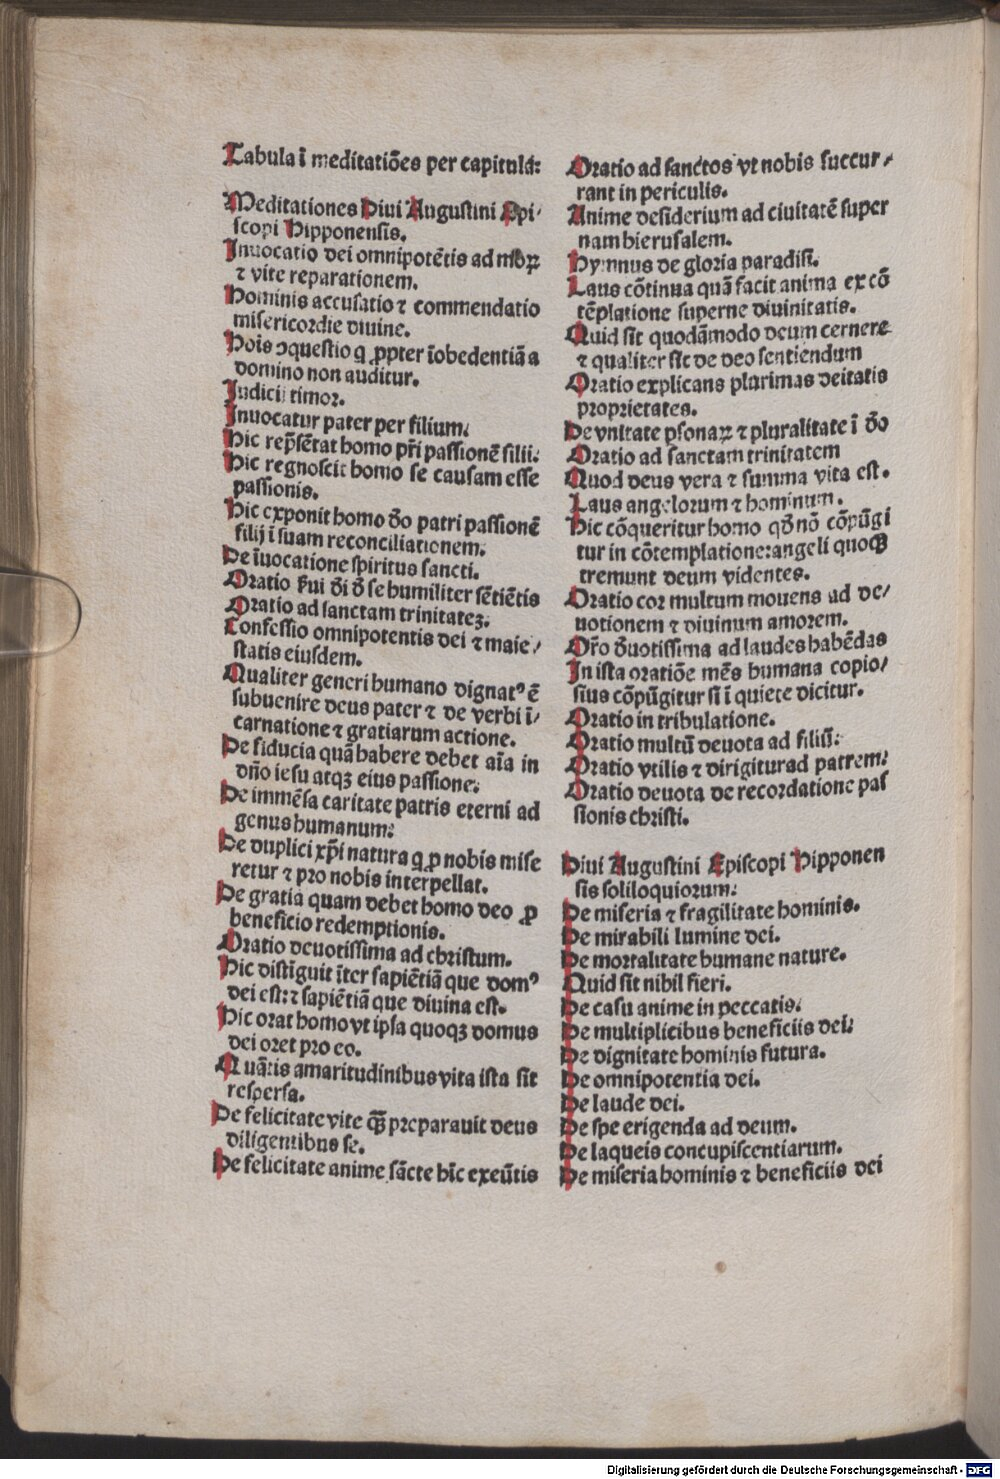 Tabula ī meditatiōes per capitula:
Meditationes Diui Augustini Epi/
scopi Hipponensis.
Inuocatio dei omnipotētis ad moꝝ
⁊ vite reparationem.
Hominis accusatio ⁊ commendatio
misericordie diuine.
Hoīs ɔquestio ꝙ ꝓpter īobedentiā a
domino non auditur.
Iudicij timor.
Inuocatur pater per filium:
Hic rep̄sētat homo pr̄i passionē filii:
Hic regnoscit homo se causam esse
passionis.
Hic exponit homo d̄o patri passionē
filij ī suam reconciliationem.
De īuocatione spiritus sancti.
Oratio s̄ui d̄i d̄ se humiliter sētiētis
Oratio ad sanctam trinitateꝫ.
Confessio omnipotentis dei ⁊ maie/
statis eiusdem.
Qualiter generi humano dignatꝰ ē
subuenire deus pater ⁊ de verbi ī/
carnatione ⁊ gratiarum actione.
De fiducia quā habere debet aīa in
dn̄o iesu atqꝫ eius passione:
De immēsa caritate patris eterni ad
genus humanum:
De duplici xp̄i natura ꝙ ꝓ nobis mise
retur ⁊ pro nobis interpellat.
De gratia quam debet homo deo ꝓ
beneficio redemptionis.
Oratio deuotissima ad christum.
Hic distīguit īter sapiētiā que domꝰ
dei est: ⁊ sapiētiā que diuina est.
Hic orat homo vt ipsa quoqꝫ domus
dei oret pro eo.
Quātis amaritudinibus vita ista sit
respersa.
De felicitate vite quā preparauit deus
diligentibus se.
De felicitate anime sācte hīc exeūtis
Oratio ad sanctos vt nobis succur/
rant in periculis.
Anime desiderium ad ciuitatē super
nam hierusalem.
Hymnus de gloria paradisi.
Laus cōtinua quā facit anima ex cō
tēplatione superne diuinitatis.
Quid sit quodāmodo deum cernere
⁊ qualiter sit de deo sentiendum
Oratio explicans plurimas deitatis
proprietates.
De vnitate ꝑsonaꝝ ⁊ pluralitate ī d̄o
Oratio ad sanctam trinitatem
Quod deus vera ⁊ summa vita est.
Laus angelorum ⁊ hominum.
Hic cōqueritur homo qd̄ nō cōpūgi
tur in cōtemplatione: angeli quoqꝫ
tremunt deum videntes.
Oratio cor multum mouens ad de/
uotionem ⁊ diuinum amorem.
Or̄o d̄uotissima ad laudes habēdas
In ista oratiōe mēs humana copio/
sius cōpūgitur si ī quiete dicitur.
Oratio in tribulatione.
Oratio multū deuota ad filiū:
Oratio vtilis ⁊ dirigitur ad patrem:
Oratio deuota de recordatione pas
sionis christi.
Diui Augustini Episcopi Hipponen
sis soliloquiorum:
De miseria ⁊ fragilitate hominis.
De mirabili lumine dei.
De mortalitate humane nature.
Quid sit nihil fieri.
De casu anime in peccatis:
De multiplicibus beneficiis dei:
De dignitate hominis futura.
De omnipotentia dei.
De laude dei.
De spe erigenda ad deum.
De laqueis concupiscentiarum.
De miseria hominis ⁊ beneficiis dei
Digitalisierung gefördert durch die Deutsche Forschungsgemeinschaft - DFG